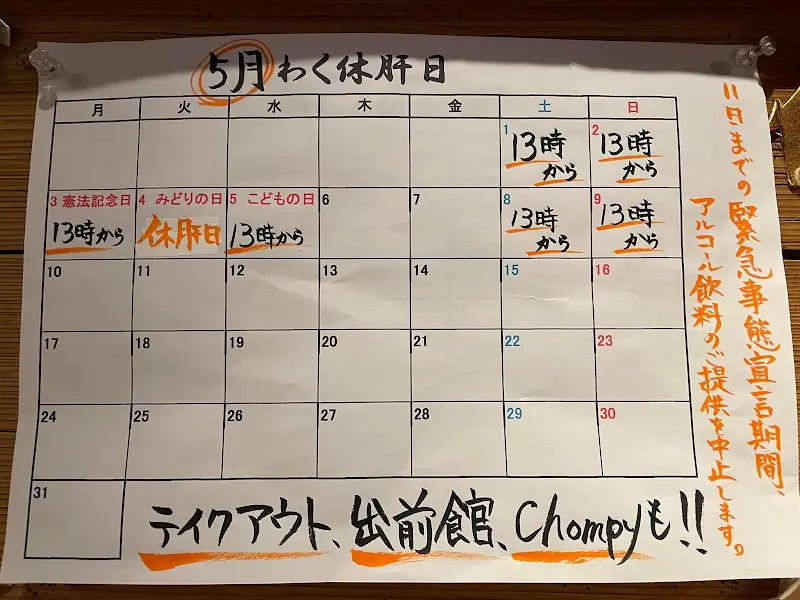 5月わく休肝日
月 火 水 木 金 土 日
1 2
13時から 13時から
3 憲法記念日 4 みどりの日 5 こどもの日 6 7 8 9
13時から 休肝日 13時から 13時から 13時から
10 11 12 13 14 15 16
17 18 19 20 21 22 23
24 25 26 27 28 29 30
31
テイクアウト、出前館、Chompyも!!
11日までの緊急事態宣言期間、
アルコール飲料のご提供を中止します。